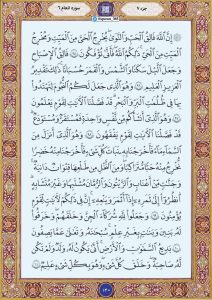 جزء ٧
سورة الانعام ٦
إِنَّ اللَّهَ فَالِقُ الْحَبِّ وَالنَّوَىٰ يُخْرِجُ الْحَيَّ مِنَ الْمَيِّتِ وَمُخْرِجُ
الْمَيِّتِ مِنَ الْحَيِّ ذَٰلِكُمُ اللَّهُ فَأَنَّىٰ تُؤْفَكُونَ ٩٥ فَالِقُ الْإِصْبَاحِ
وَجَعَلَ اللَّيْلَ سَكَنًا وَالشَّمْسَ وَالْقَمَرَ حُسْبَانًا ذَٰلِكَ تَقْدِيرُ
الْعَزِيزِ الْعَلِيمِ ٩٦ وَهُوَ الَّذِي جَعَلَ لَكُمُ النُّجُومَ لِتَهْتَدُوا
بِهَا فِي ظُلُمَاتِ الْبَرِّ وَالْبَحْرِ قَدْ فَصَّلْنَا الْآيَاتِ لِقَوْمٍ يَعْلَمُونَ
٩٧ وَهُوَ الَّذِي أَنْشَأَكُمْ مِنْ نَفْسٍ وَاحِدَةٍ فَمُسْتَقَرٌّ وَمُسْتَوْدَعٌ
قَدْ فَصَّلْنَا الْآيَاتِ لِقَوْمٍ يَفْقَهُونَ ٩٨ وَهُوَ الَّذِي أَنْزَلَ مِنَ
السَّمَاءِ مَاءً فَأَخْرَجْنَا بِهِ نَبَاتَ كُلِّ شَيْءٍ فَأَخْرَجْنَا مِنْهُ خَضِرًا
نُخْرِجُ مِنْهُ حَبًّا مُتَرَاكِبًا وَمِنَ النَّخْلِ مِنْ طَلْعِهَا قِنْوَانٌ دَانِيَةٌ
وَجَنَّاتٍ مِنْ أَعْنَابٍ وَالزَّيْتُونَ وَالرُّمَّانَ مُشْتَبِهًا وَغَيْرَ مُتَشَابِهٍ
انْظُرُوا إِلَىٰ ثَمَرِهِ إِذَا أَثْمَرَ وَيَنْعِهِ إِنَّ فِي ذَٰلِكُمْ لَآيَاتٍ لِقَوْمٍ
يُؤْمِنُونَ ٩٩ وَجَعَلُوا لِلَّهِ شُرَكَاءَ الْجِنَّ وَخَلَقَهُمْ وَخَرَقُوا
لَهُ بَنِينَ وَبَنَاتٍ بِغَيْرِ عِلْمٍ سُبْحَانَهُ وَتَعَالَىٰ عَمَّا يَصِفُونَ
١٠٠ بَدِيعُ السَّمَاوَاتِ وَالْأَرْضِ أَنَّىٰ يَكُونُ لَهُ وَلَدٌ وَلَمْ تَكُنْ
لَهُ صَاحِبَةٌ وَخَلَقَ كُلَّ شَيْءٍ وَهُوَ بِكُلِّ شَيْءٍ عَلِيمٌ ١٠١
١٤٠